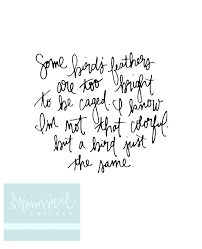 Some birds feathers
are too bright
to be caged. I know
I'm not that colorful
but a bird just
the same.